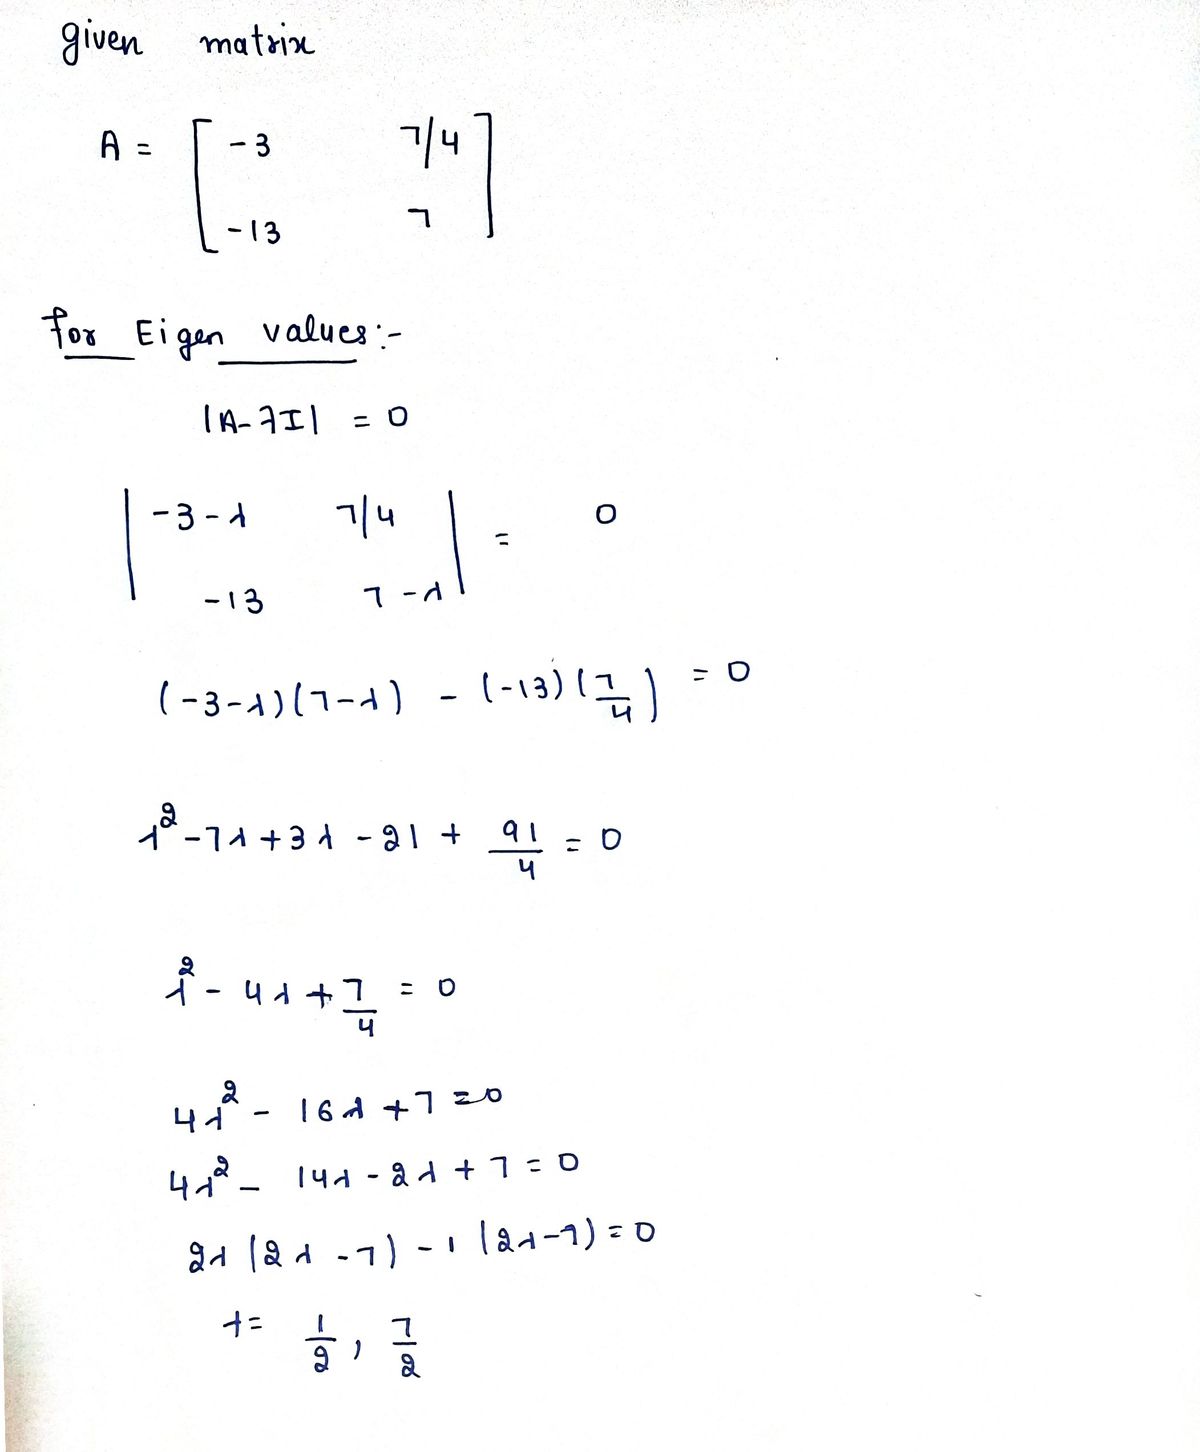 given matrix
A = [ -3 7/4
-13 7 ]
for Eigen values:-
|A-λI| = 0
| -3-λ 7/4 | = 0
-13 7-λ
(-3-λ)(7-λ) - (-13)(7/4) = 0
λ² -7λ+3λ -21 + 91/4 = 0
λ² - 4λ + 7/4 = 0
4λ² - 16λ +7 =0
4λ² - 14λ - 2λ + 7 = 0
2λ (2λ -7) -1 (2λ-7) = 0
λ= 1/2, 7/2